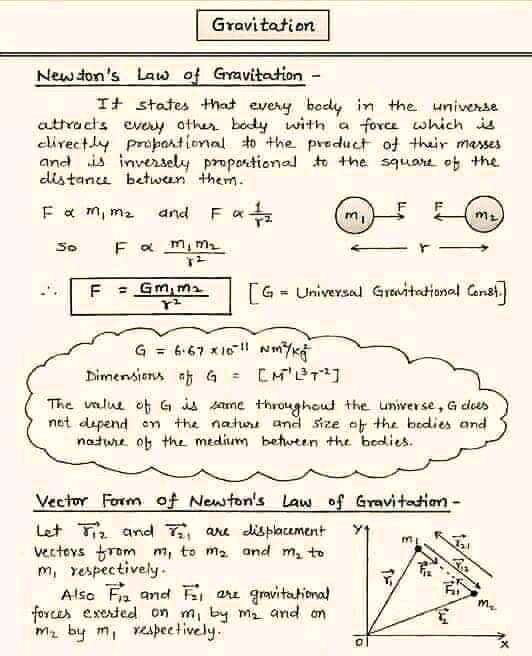 Gravitation
Newton's Law of Gravitation -
It states that every body in the universe
attracts every other body with a force which is
directly proportional to the product of their masses
and is inversely proportional to the square of the
distance between them.
F ∝ m₁m₂ and F ∝ 1/r²
m₁ F F m₂
So F ∝ m₁m₂/r²
r
∴ F = Gm₁m₂/r² [G = Universal Gravitational Const.]
G = 6.67 x 10⁻¹¹ Nm²/kg²
Dimensions of G = [M⁻¹L³T⁻²]
The value of G is same throughout the universe, G does
not depend on the nature and size of the bodies and
nature of the medium between the bodies.
Vector Form of Newton's Law of Gravitation -
Let r⃗₁₂ and r⃗₂₁ are displacement
vectors from m₁ to m₂ and m₂ to
m₁ respectively.
Also F⃗₁₂ and F⃗₂₁ are gravitational
forces exerted on m₁ by m₂ and on
m₂ by m₁ respectively.
Y
m₁ r⃗₂₁
r⃗₁₂
F⃗₁₂ r
r⃗₁ F⃗₂₁
m₂
r⃗₂
O X